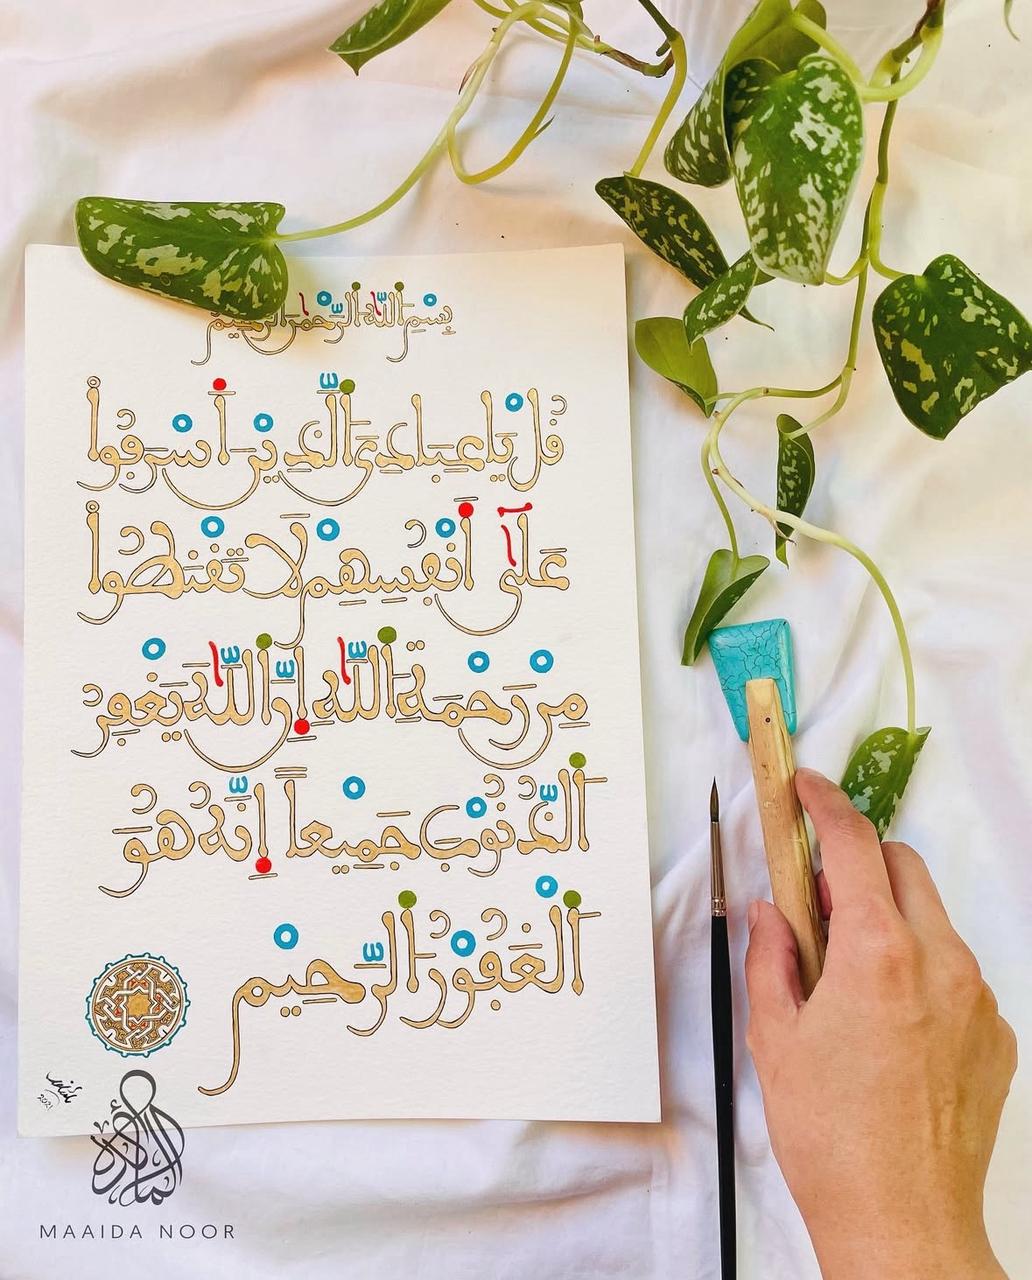 بِسْمِ اللَّهِ الرَّحْمَٰنِ الرَّحِيمِ
قُلْ يَا عِبَادِيَ الَّذِينَ أَسْرَفُوا
عَلَىٰ أَنْفُسِهِمْ لَا تَقْنَطُوا
مِنْ رَحْمَةِ اللَّهِ إِنَّ اللَّهَ يَغْفِرُ
الذُّنُوبَ جَمِيعاً إِنَّهُ هُوَ
الْغَفُورُ الرَّحِيمُ
2021
MAAIDA NOOR